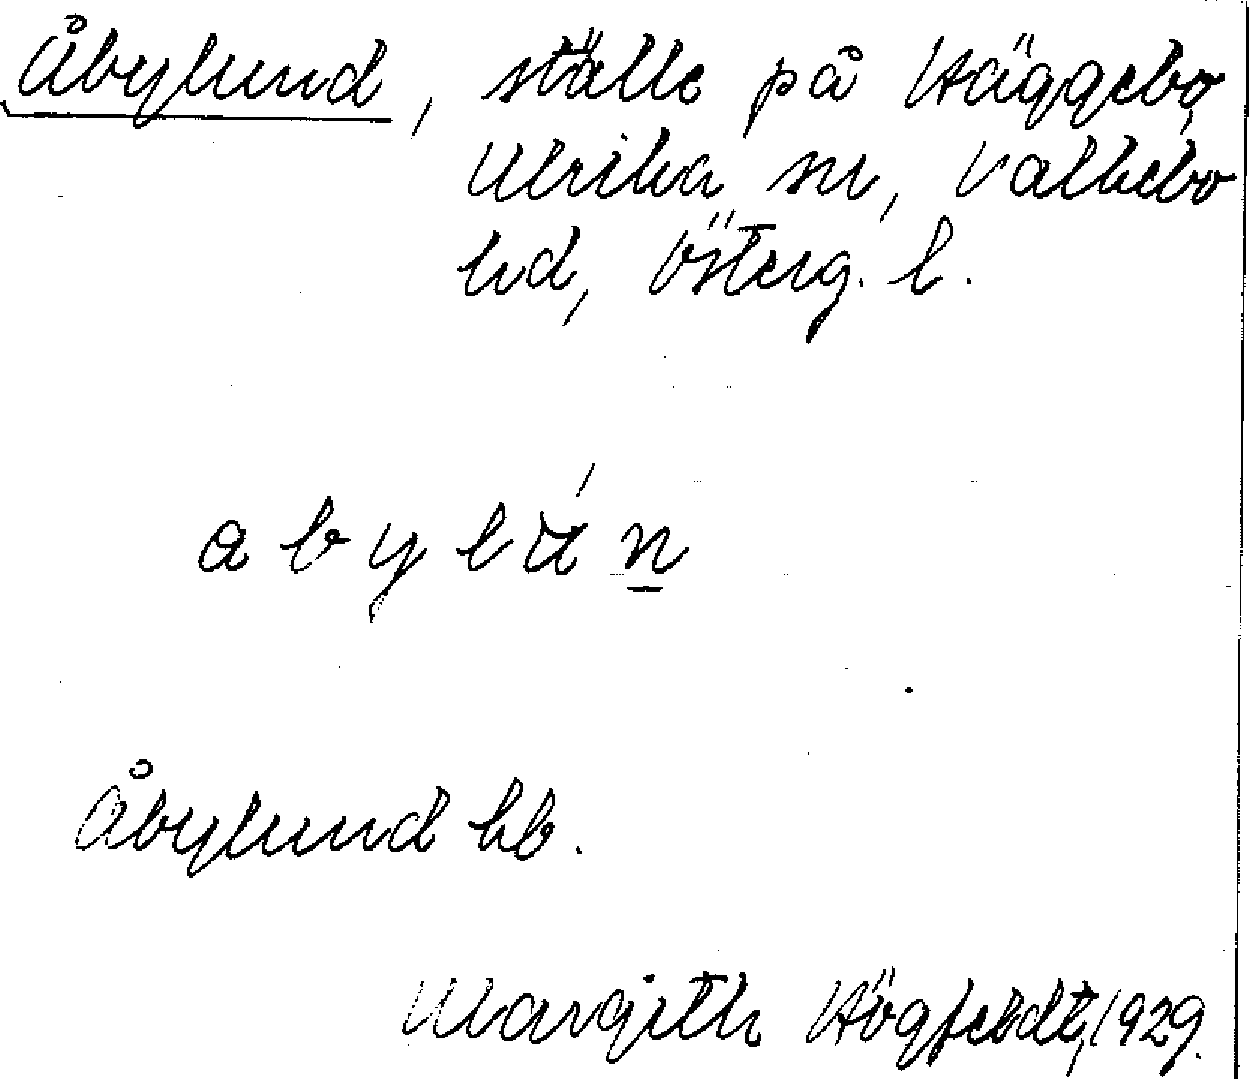 Åbylund, ställe på Häggebo,
Ulrika sn, Valkebo
hd, Österg. l.
abylún
Åbylund hb.
Margith Högfeldt, 1929.